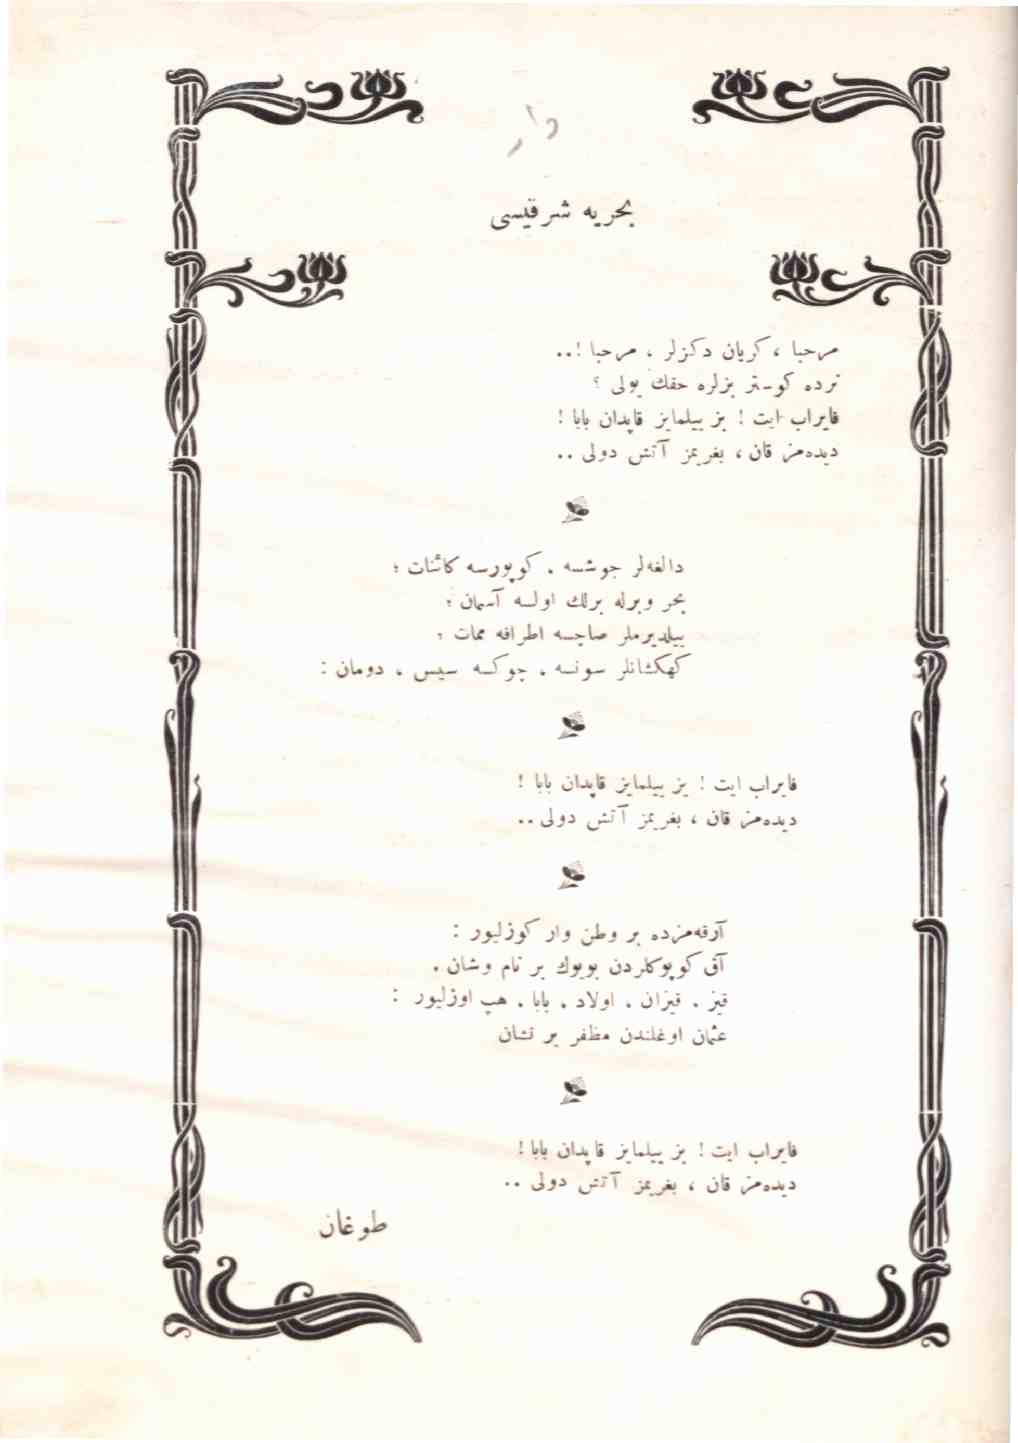 بحریه شرقیسی
مرحبا ، کریان دکزلر ، مرحبا !..
نرده کوستر بزلره حقك یولی ؟
فایراب ایت ! بز ییلمایز قاپدان بابا !
دیده‌مز قان ، بغریمز آتش دولی ..
دالغه‌لر جوشسه . کوپورسه کائنات ؛
بحر وبرله برلك اولسه آسمان ؛
ییلدیرملر صاچسه اطرافه ممات ؛
کهکشانلر سونسه . چوکسه سیس ، دومان :
فایراب ایت ! بز ییلمایز قاپدان بابا !
دیده‌مز قان ، بغریمز آتش دولی ..
آرقه‌مزده بر وطن وار کوزلیور :
آق کوپوکلردن بویوك بر نام وشان .
قیز . قیزان . اولاد . بابا . هپ اوزلیور :
عثمان اوغلندن مظفر بر نشان
فایراب ایت ! بز ییلمایز قاپدان بابا !
دیده‌مز قان ، بغریمز آتش دولی ..
طوغان